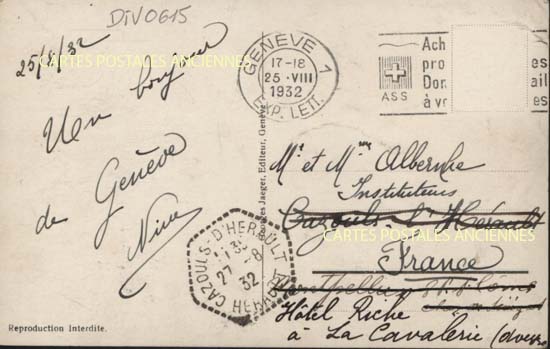 DIVO615
25/8/32
CARTES POSTALES ANCIENNES
Un bonjour
de Genève
Nini
Reproduction Interdite.
Georges Jaeger, Editeur, Genève
GENÈVE 1
17-18
25.VIII
1932
EXP. LETT.
ASS
Ach
pro es
Don ail
à ve es
CARTES POSTALES ANCIENNES
Mr et Mme Albernhe
Instituteurs
Cazouls d'Hérault
CARTES POSTALES ANCIENNES
France
Montpellier
Hôtel Riche
à La Cavalerie (Aveyron)
CAZOULS-D'HERAULT
27 - 8
32
HERAULT